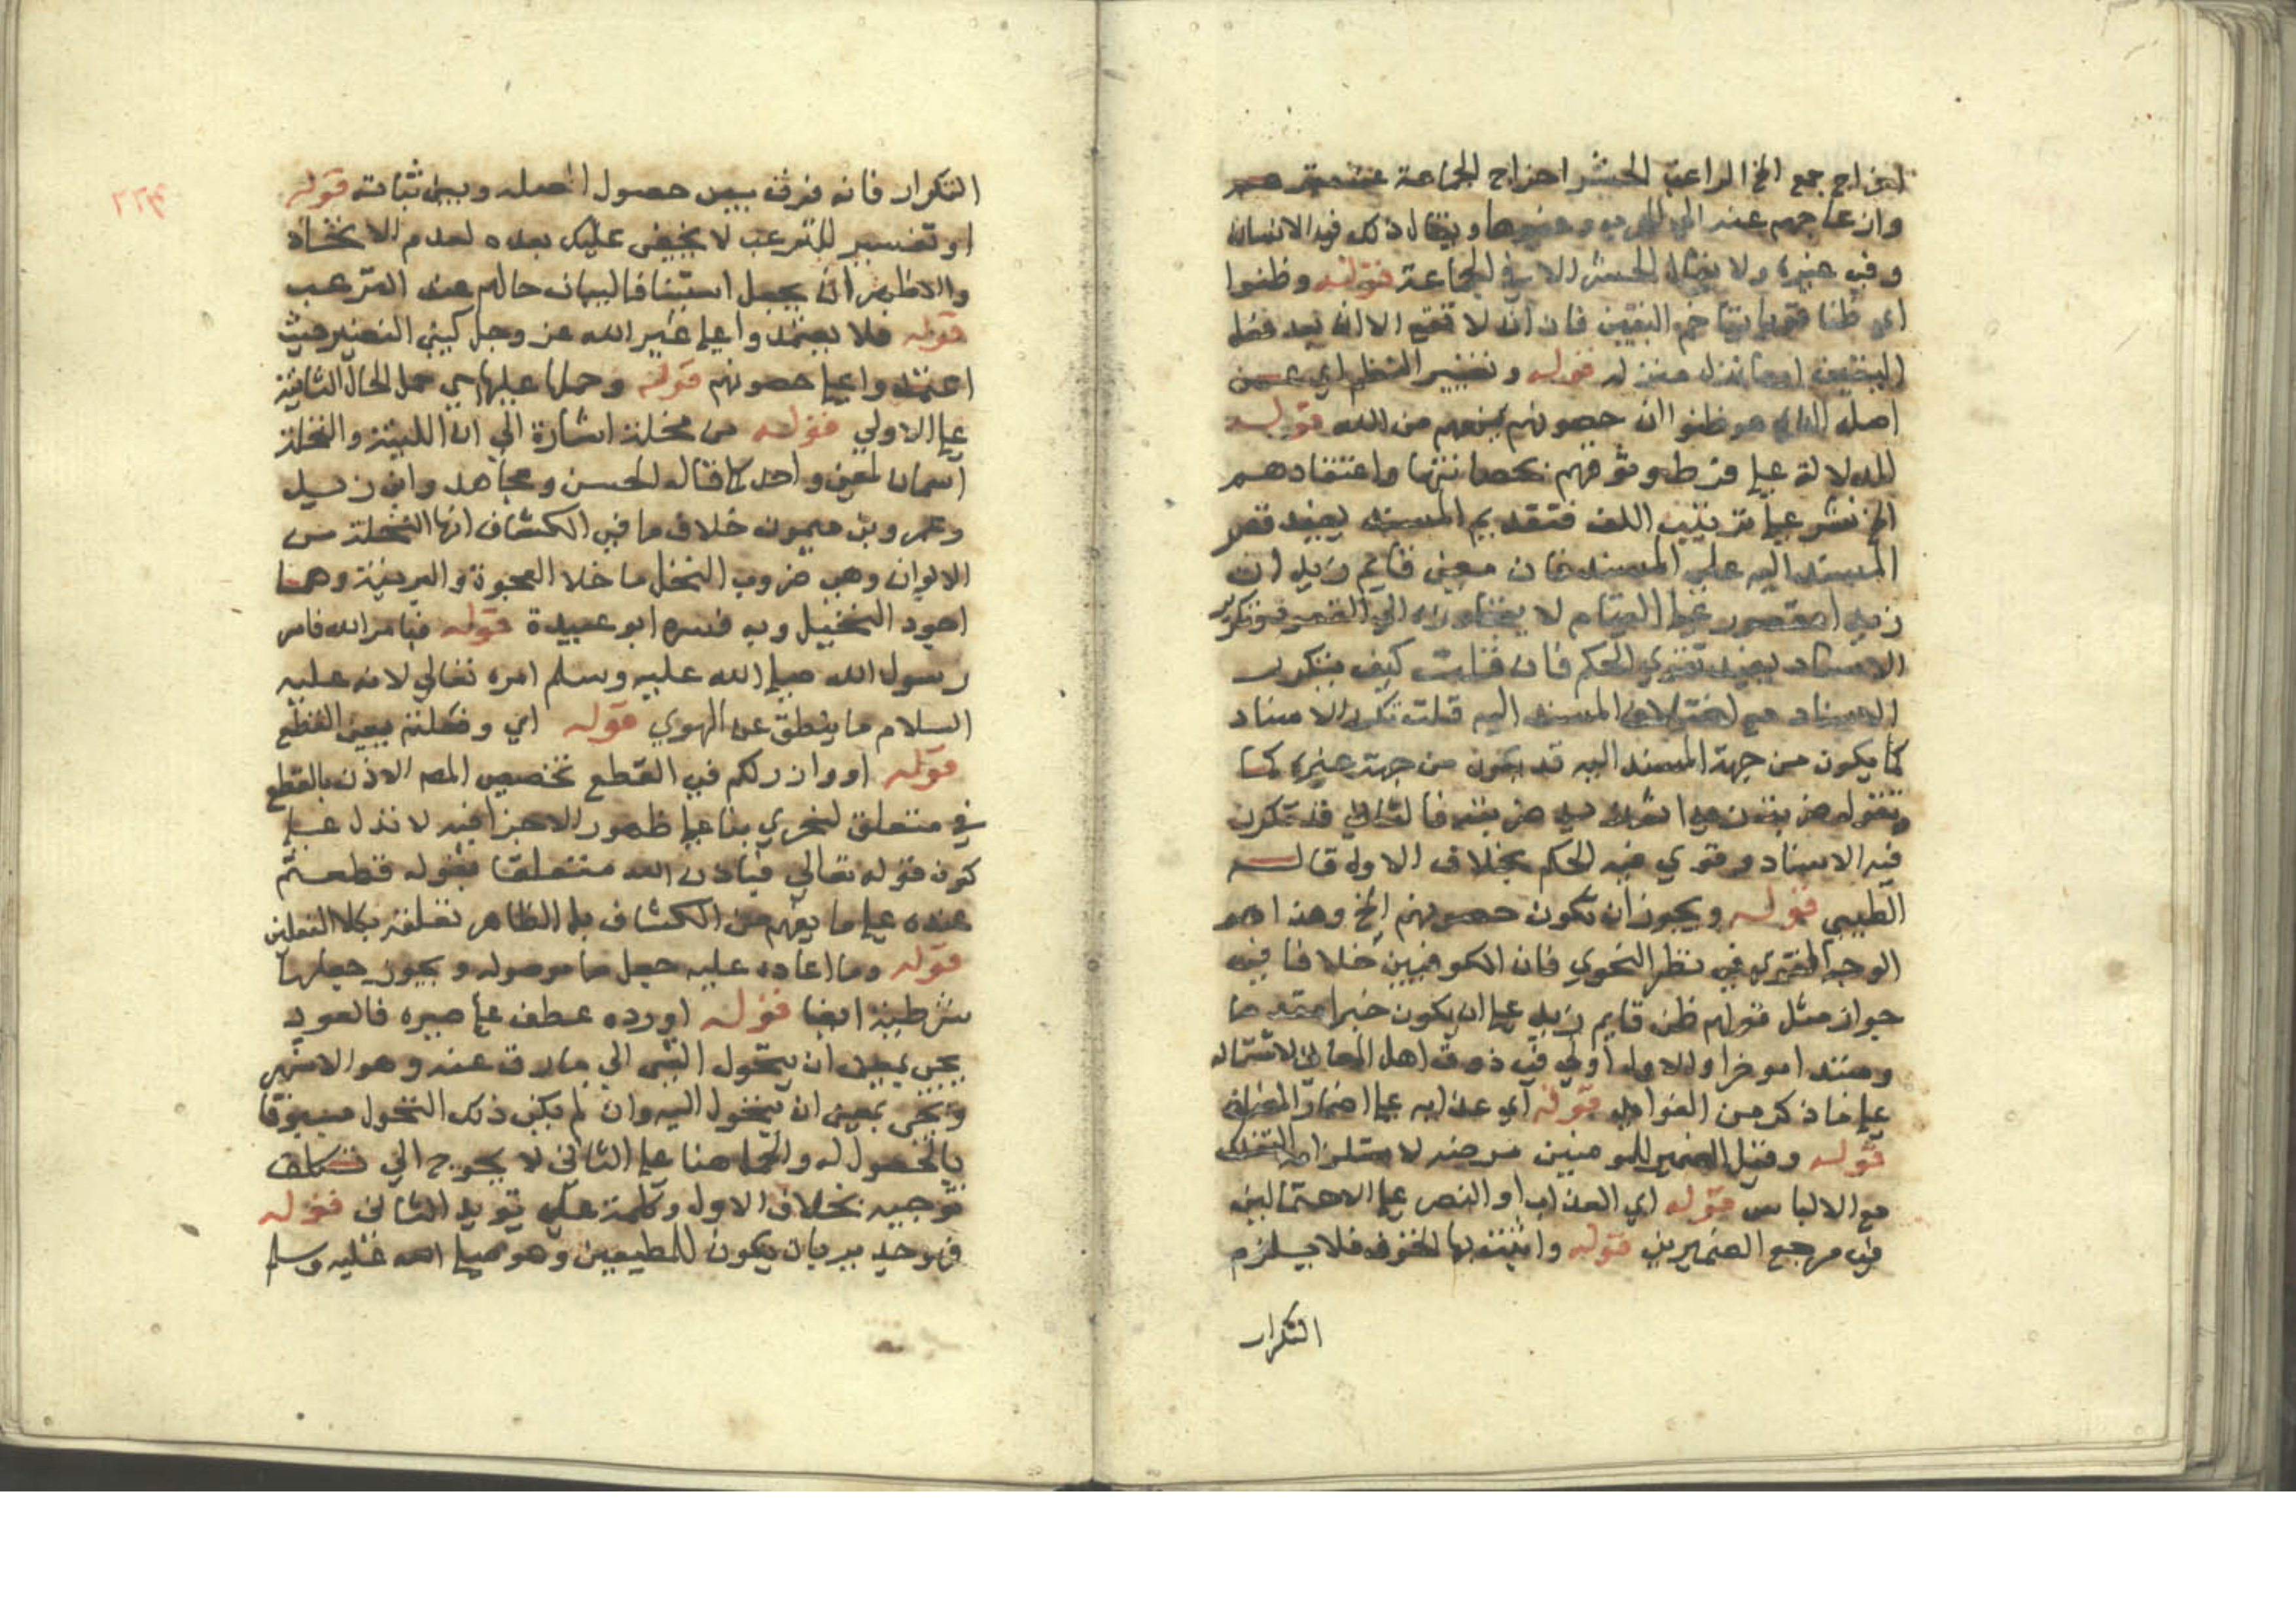 اخراج جمع الخ الراغب الحشر اخراج الجماعة عن مقرهم
وازعاجهم عنه الى الحرب وغيرها ويقال ذلك في الانسان
وفي غيره ولا يقال الحشر الا في الجماعة قوله وظنوا
اي ظنا قويا يتاخم اليقين فان ان لا تقع الا ان بعد فعل
اليقين او ما نزل منزله قوله وتغيير النظم اي عن
اصل الذي هو ظنوا ان حصونهم تمنعهم من الله قوله
للدلالة على فرط وثوقهم بحصانتها واعتقادهم
الخ نشر على ترتيب اللف فتقديم المسند يفيد قصر
المسند اليه على المسند فان معنى قايم زيد ان
زيدا مقصور على القيام لا يتجاوزه الى القعود وتكرر
الاسناد يفيد تقوي الحكم فان قلت كيف يتكرر
الاسناد مع اختلاف المسند اليه قلت تكرر الاسناد
كما يكون من جهة المسند اليه قد يكون من جهة غيره كما
فيه الاسناد وقوي فيه الحكم بخلاف الاول قاله
الطيبي قوله ويجوز ان تكون حصونهم الخ وهذا هو
الوجه القوي في نظر النحوي فان الكوفيين خلافا في
جواز مثل قولهم ظن قايم زيد على ان يكون خبرا مقدما
ومبتدا موخرا والاول اولى في ذوق اهل المعاني لاشتماله
على ما ذكر من الفوايد قوله اي عذابه على اضمار المضاف
قوله وقيل الضمير للمومنين مرضه لاستلزامه التفكك
مع الالباس قوله اي العذاب او النصر على الاحتمالين
في مرجع الضميرين قوله واثبت بها الخوف فلا يلزم
التكرار
٢٢٤
التكرار فانه فرق بين حصول اصله وبين ثباته قوله
او تفسير للترعب لا يخفى عليك بعده لعدم الاتحاد
والاظهر ان يجعل استينافا لبيان حالهم عند الترعب
قوله فلا يعتمدوا على غير الله عز وجل كبني النضير حيث
اعتمدوا على حصونهم قوله وحملها عليها اي حمل الحال الثانية
على الاولى قوله من نخلة اشارة الى ان اللينة والنخلة
اسمان لمعنى واحد كما قاله الحسن ومجاهد وابن زيد
وعمرو بن ميمون خلاف ما في الكشاف انها النخلة من
الالوان وهي ضروب النخل ما خلا العجوة والبرنية وهما
اجود النخيل وبه فسره ابو عبيدة قوله فبامر الله فامر
رسول الله صلى الله عليه وسلم امره تعالى لانه عليه
السلام ما ينطق عن الهوى قوله اي وفعلتم يعني القطع
قوله او واذن لكم في القطع تخصيص المص الاذن بالقطع
في متعلق ليخزي بنا على ظهور الاخزا فيه لا تدل على
كون قوله تعالى فباذن الله متعلقا بقوله قطعتم
عنده على ما يفهم من الكشاف بل الظاهر تعلقه بكلا الفعلين
قوله وما اعاده عليه جعل ما موصوله ويجوز جعلها
شرطية ايضا قوله او رده عطف على صيره فالعود
يجي بمعنى ان يتحول الشي الى ما فارق عنه وهو الاشهر
ويجي بمعنى ان يتحول اليه وان لم يكن ذلك التحول مسبوقا
بالحصول له والحمل هنا على الثاني لا يحوج الى تكلف
توجيه بخلاف الاول وكلمة على تويد الثاني قوله
فهو جدير بان يكون للمطيعين وهو صلى الله عليه وسلم